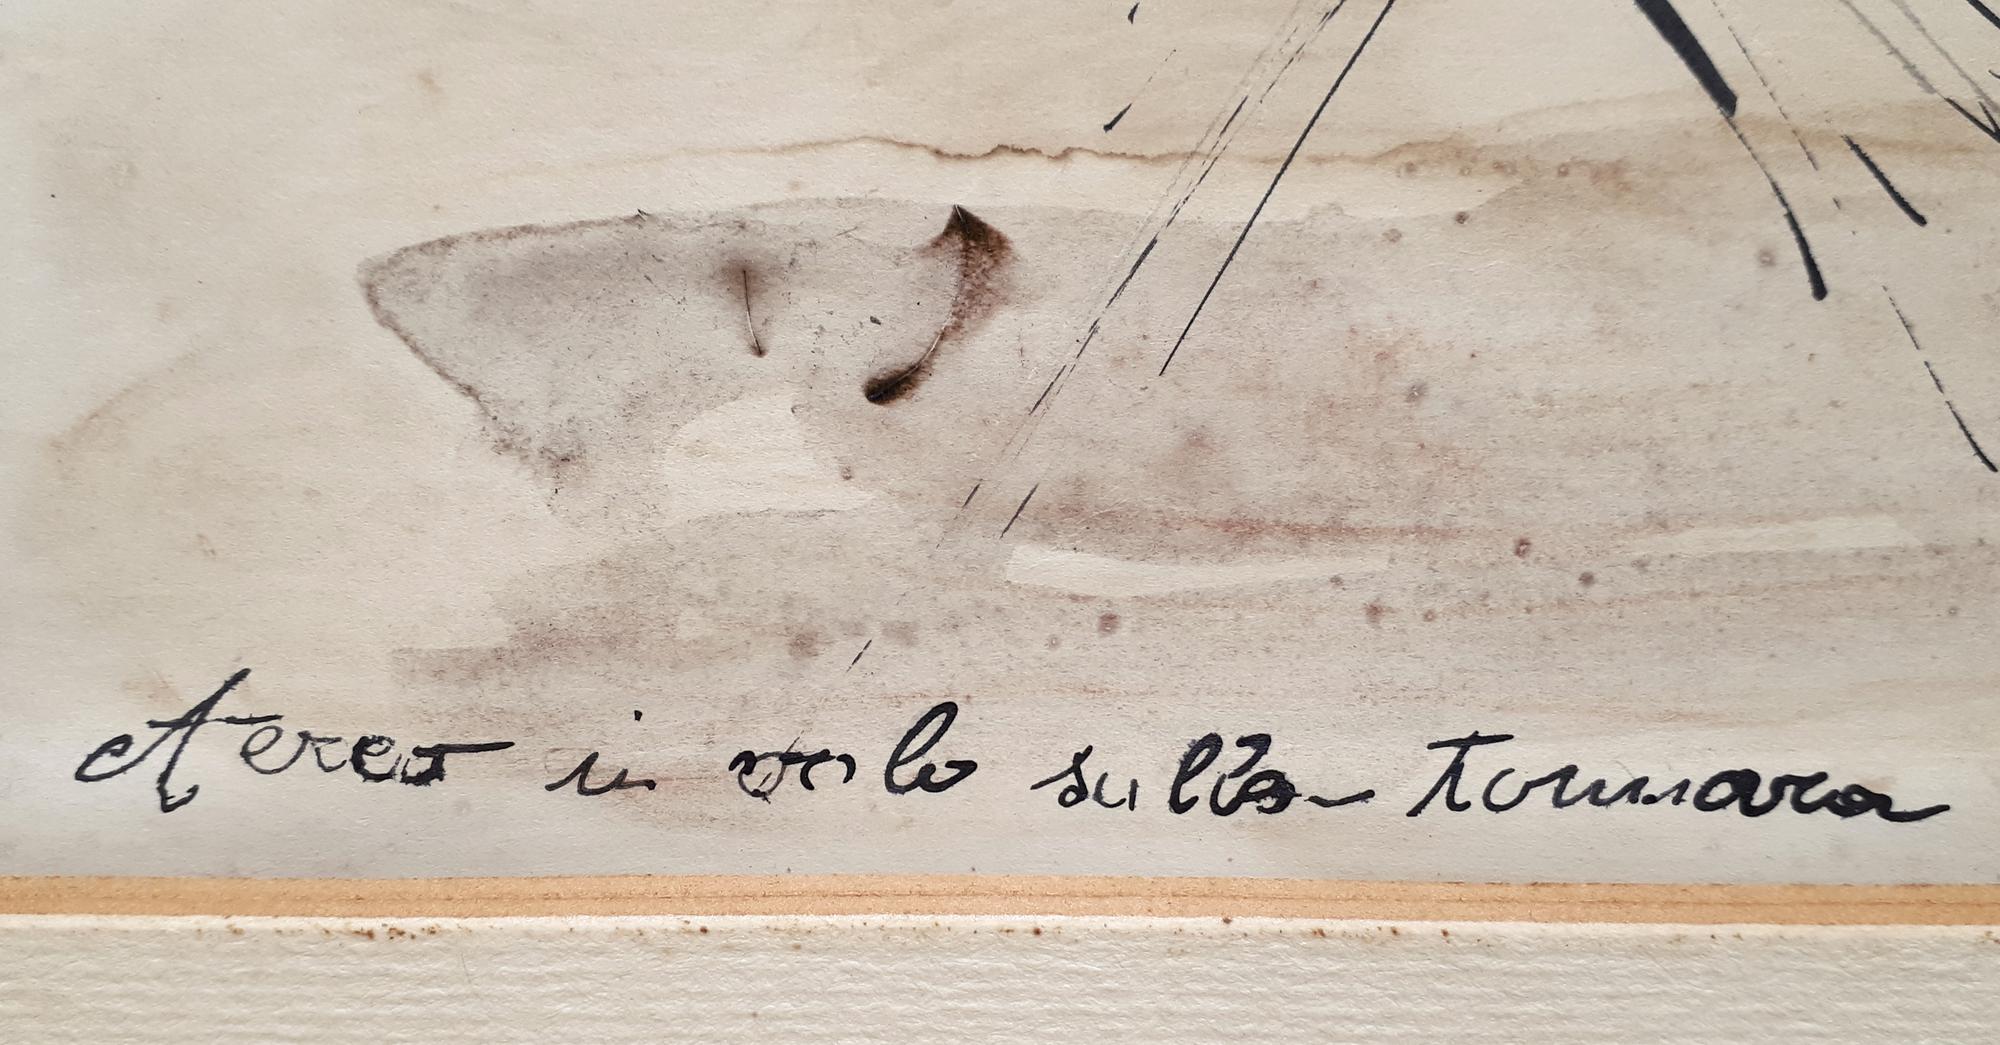 Aereo in volo sulla Tonnara